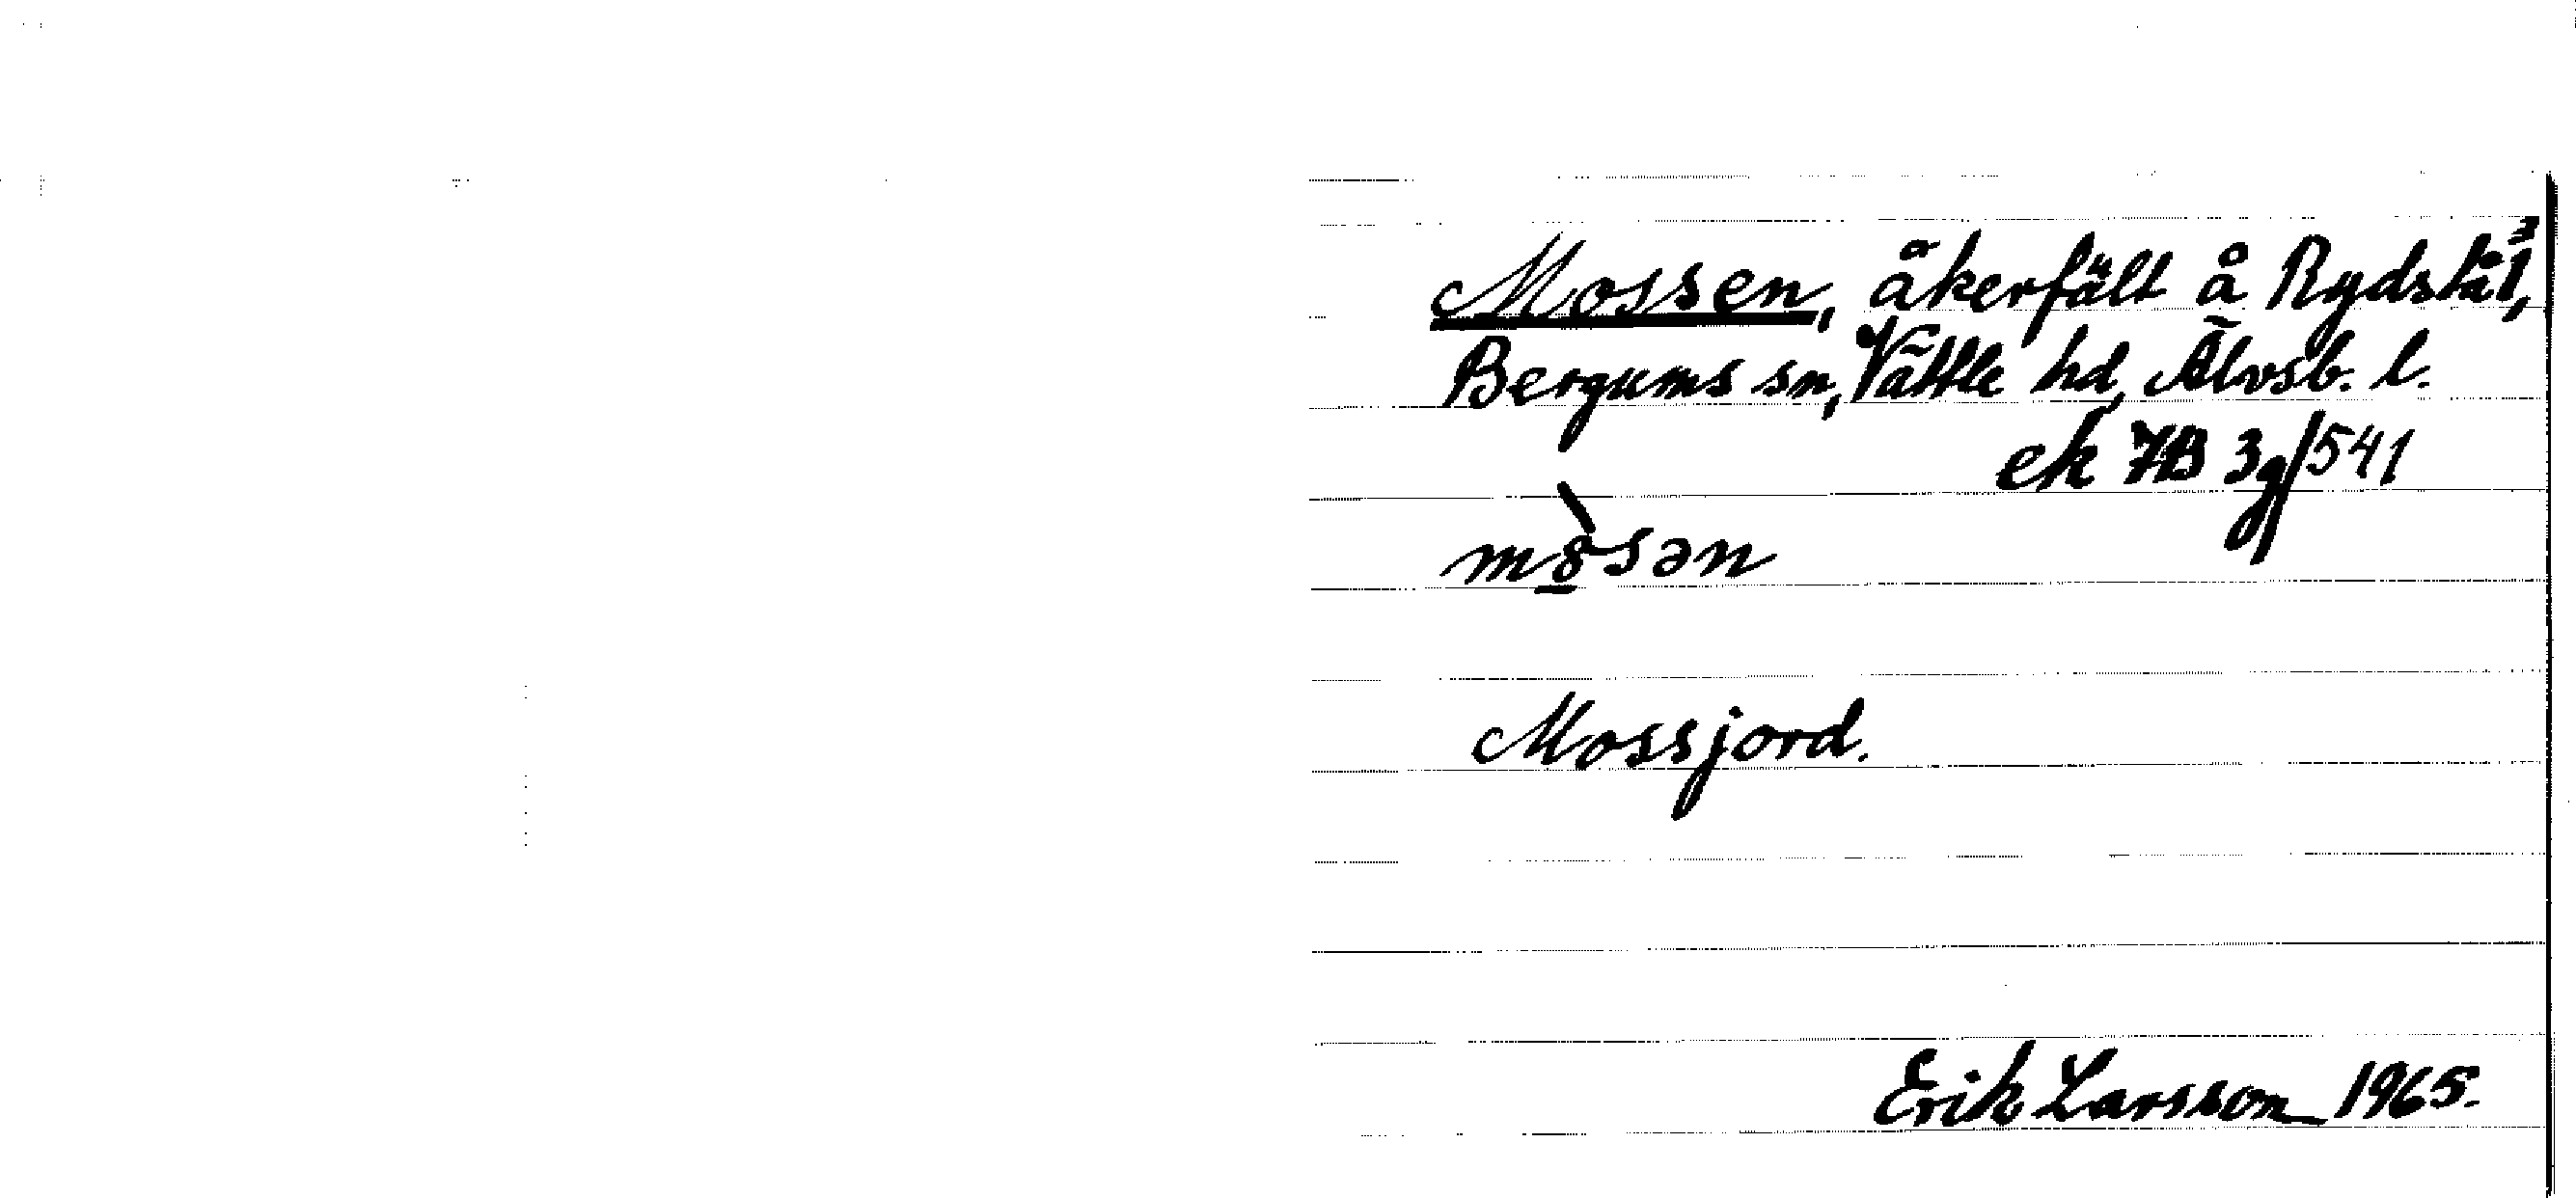 Mossen, åkerfält å Rydstå 1³,
Bergums sn, Vättle hd, Älvsb. l.
ek 7B 3g/541
mòsən
Mossjord.
Erik Larsson 1965.